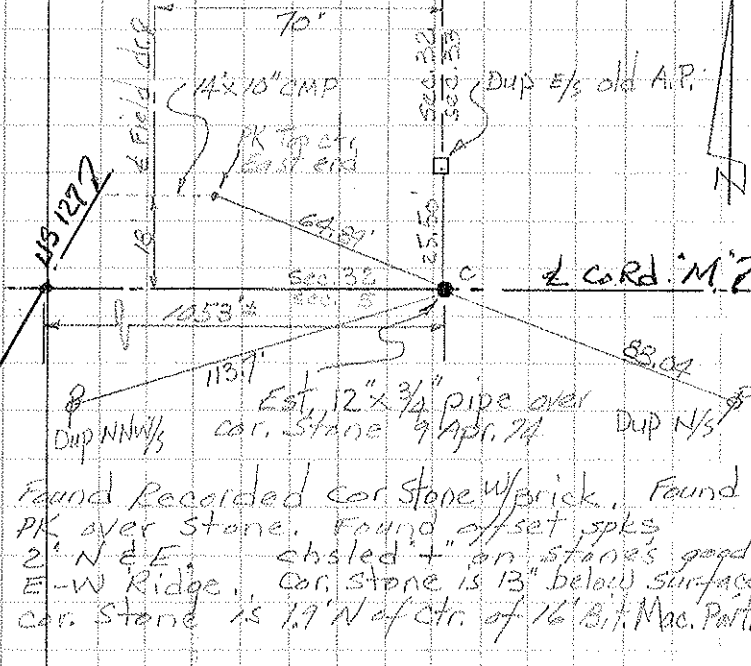 70'
℄ Field dr.
14'x10" CMP
PK Top ctr.
East end
sec. 32
sec. 33
Dup E/s old A.P.
18'
64.89'
25.50'
N
US 127
sec. 32
sec. 5
C
℄ Co Rd. "M"
1053'±
113.7'
83.04
Est. 12" x 3/4" pipe over
cor. Stone 9 Apr. 74
Dup NNW/s
Dup N/s
Found Recorded cor Stone W/brick. Found
PK over Stone. Found offset spks
2' N & E. chsled "+" on stone's good
E-W Ridge. Cor. Stone is 13" below surface
cor. Stone is 1.9' N of Ctr. of 16' Bit. Mac. Pvmt.